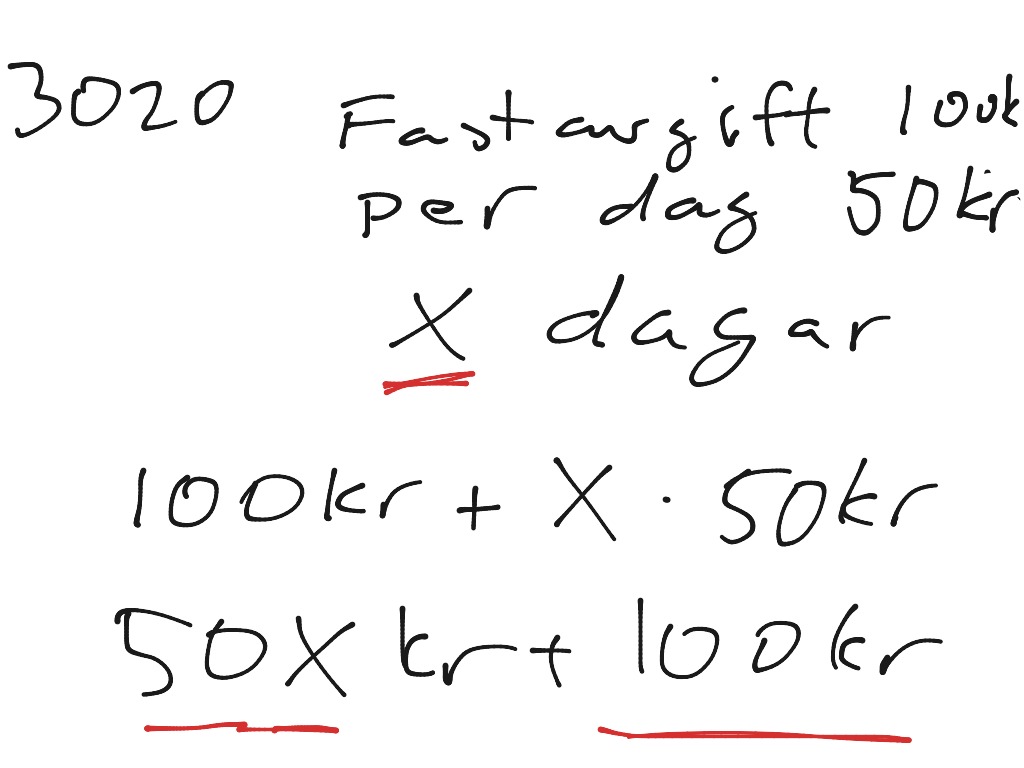 3020 Fastavgift 100k
per dag 50kr
X dagar
100kr + X · 50kr
50X kr + 100kr